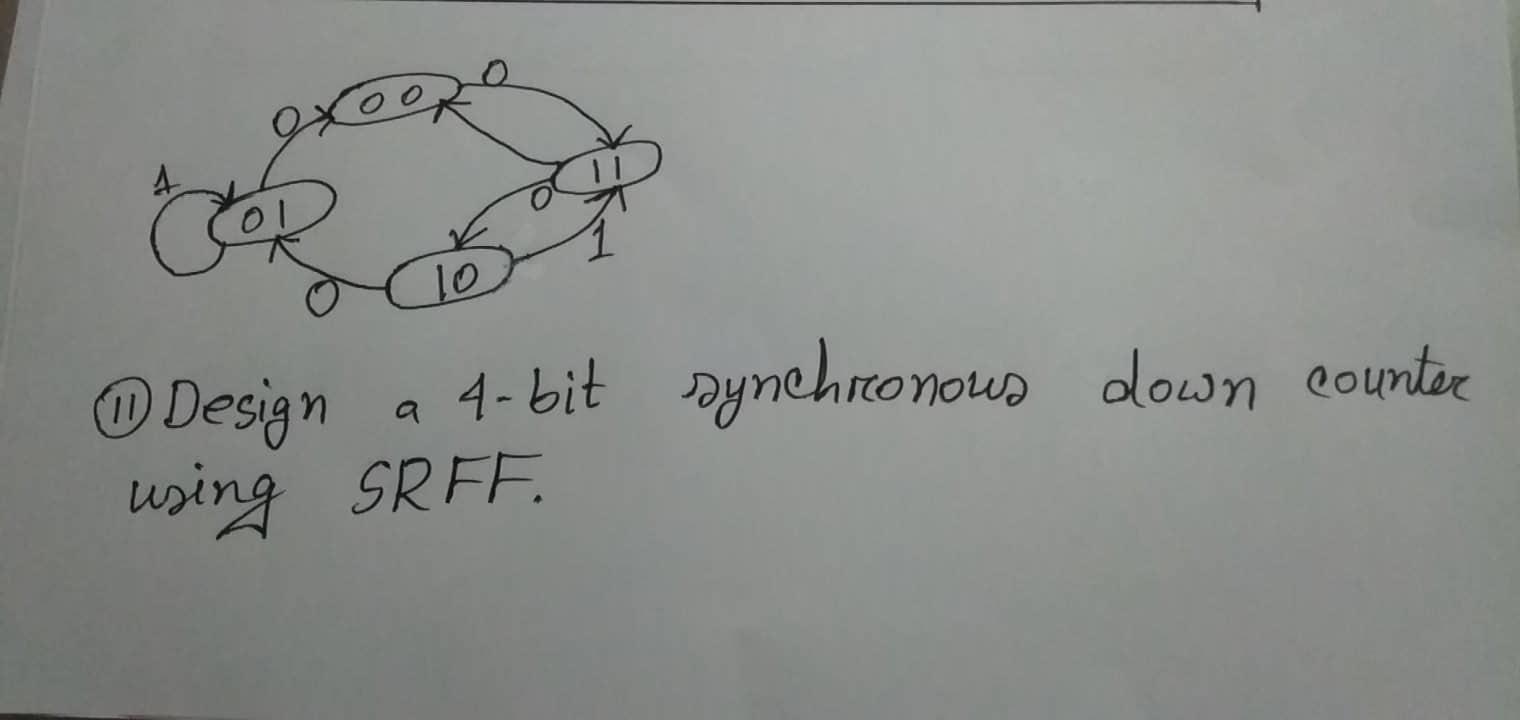 0 00 0
1 01 11
0 1
0 10
⑪ Design a 4-bit synchronous down counter
using SRFF.